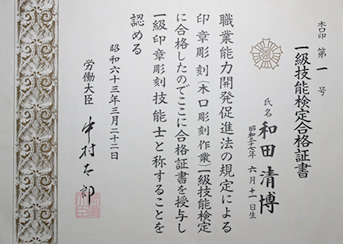 第一号
一級技能検定合格証書
氏名 和田清博
昭和三十七年六月十一日生
職業能力開発促進法の規定による
印章彫刻(木口彫刻作業)一級技能検定
に合格したのでここに合格証書を授与し
一級印章彫刻技能士と称することを
認める
昭和六十三年三月二十二日
労働大臣 中村太郎